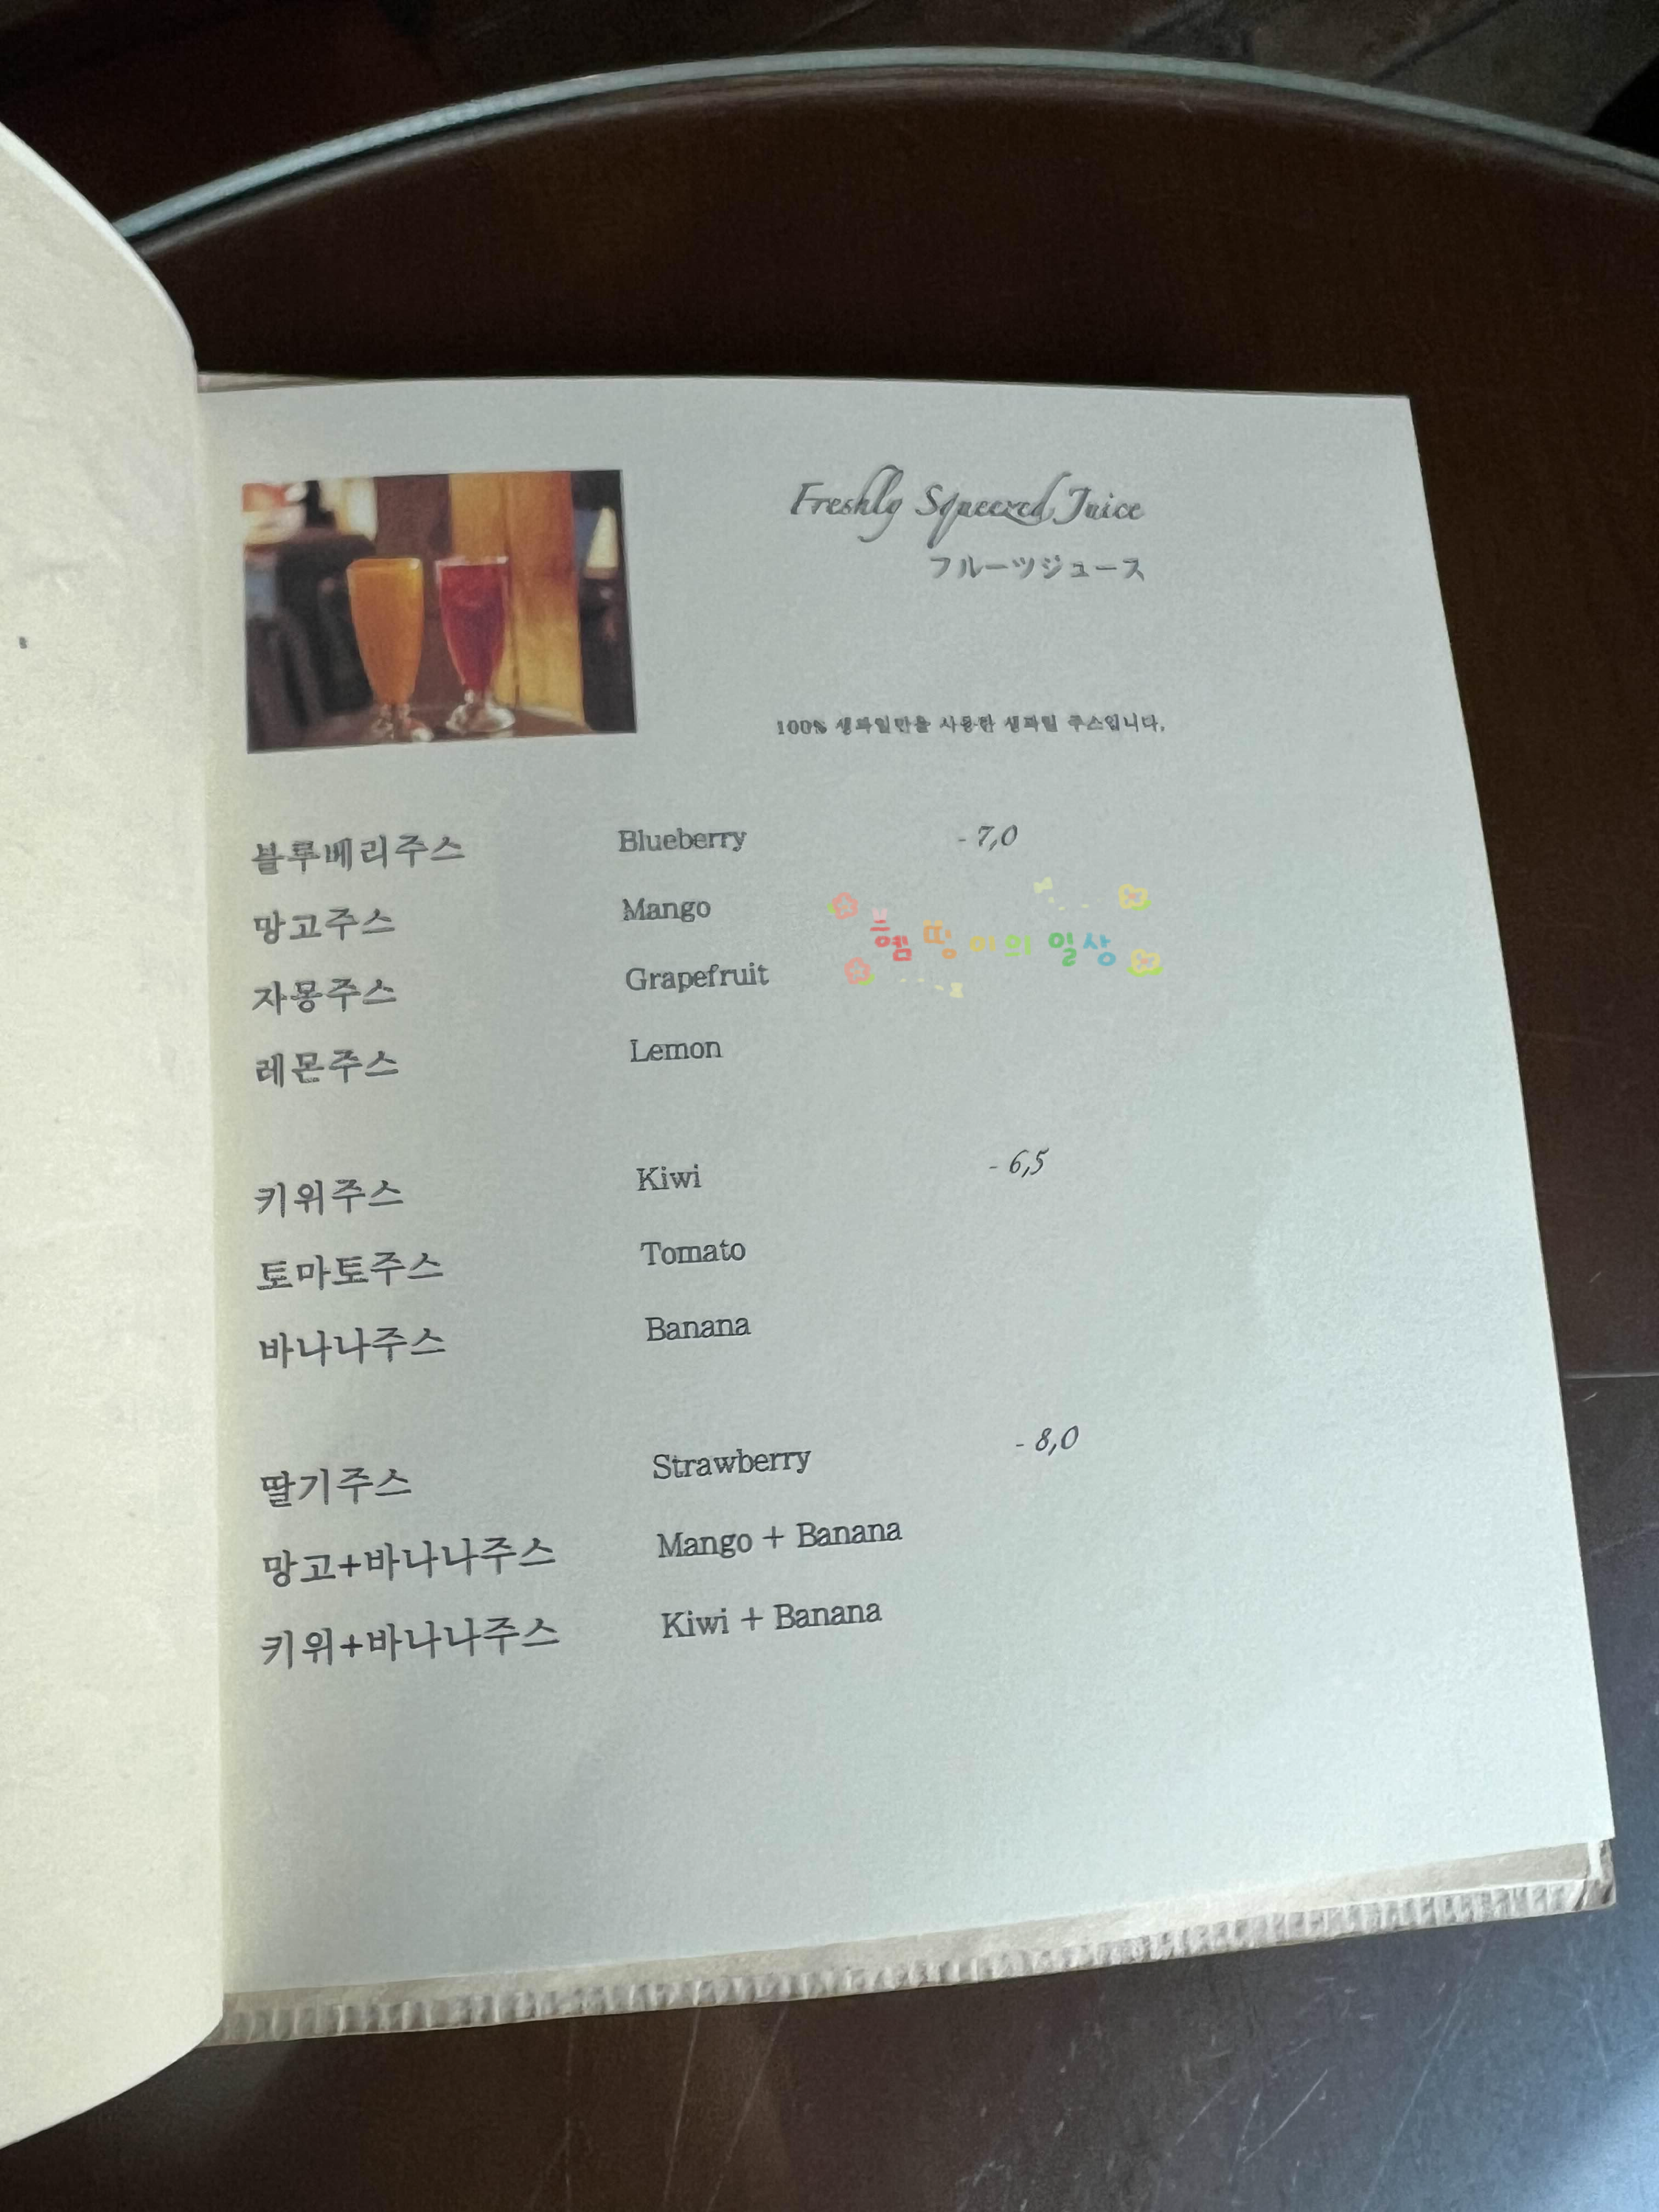 Freshly Squeezed Juice
フルーツジュース
100% 생과일만을 사용한 생과일 주스입니다.
블루베리주스 Blueberry - 7,0
망고주스 Mango
자몽주스 Grapefruit
레몬주스 Lemon
키위주스 Kiwi - 6,5
토마토주스 Tomato
바나나주스 Banana
딸기주스 Strawberry - 8,0
망고+바나나주스 Mango + Banana
키위+바나나주스 Kiwi + Banana